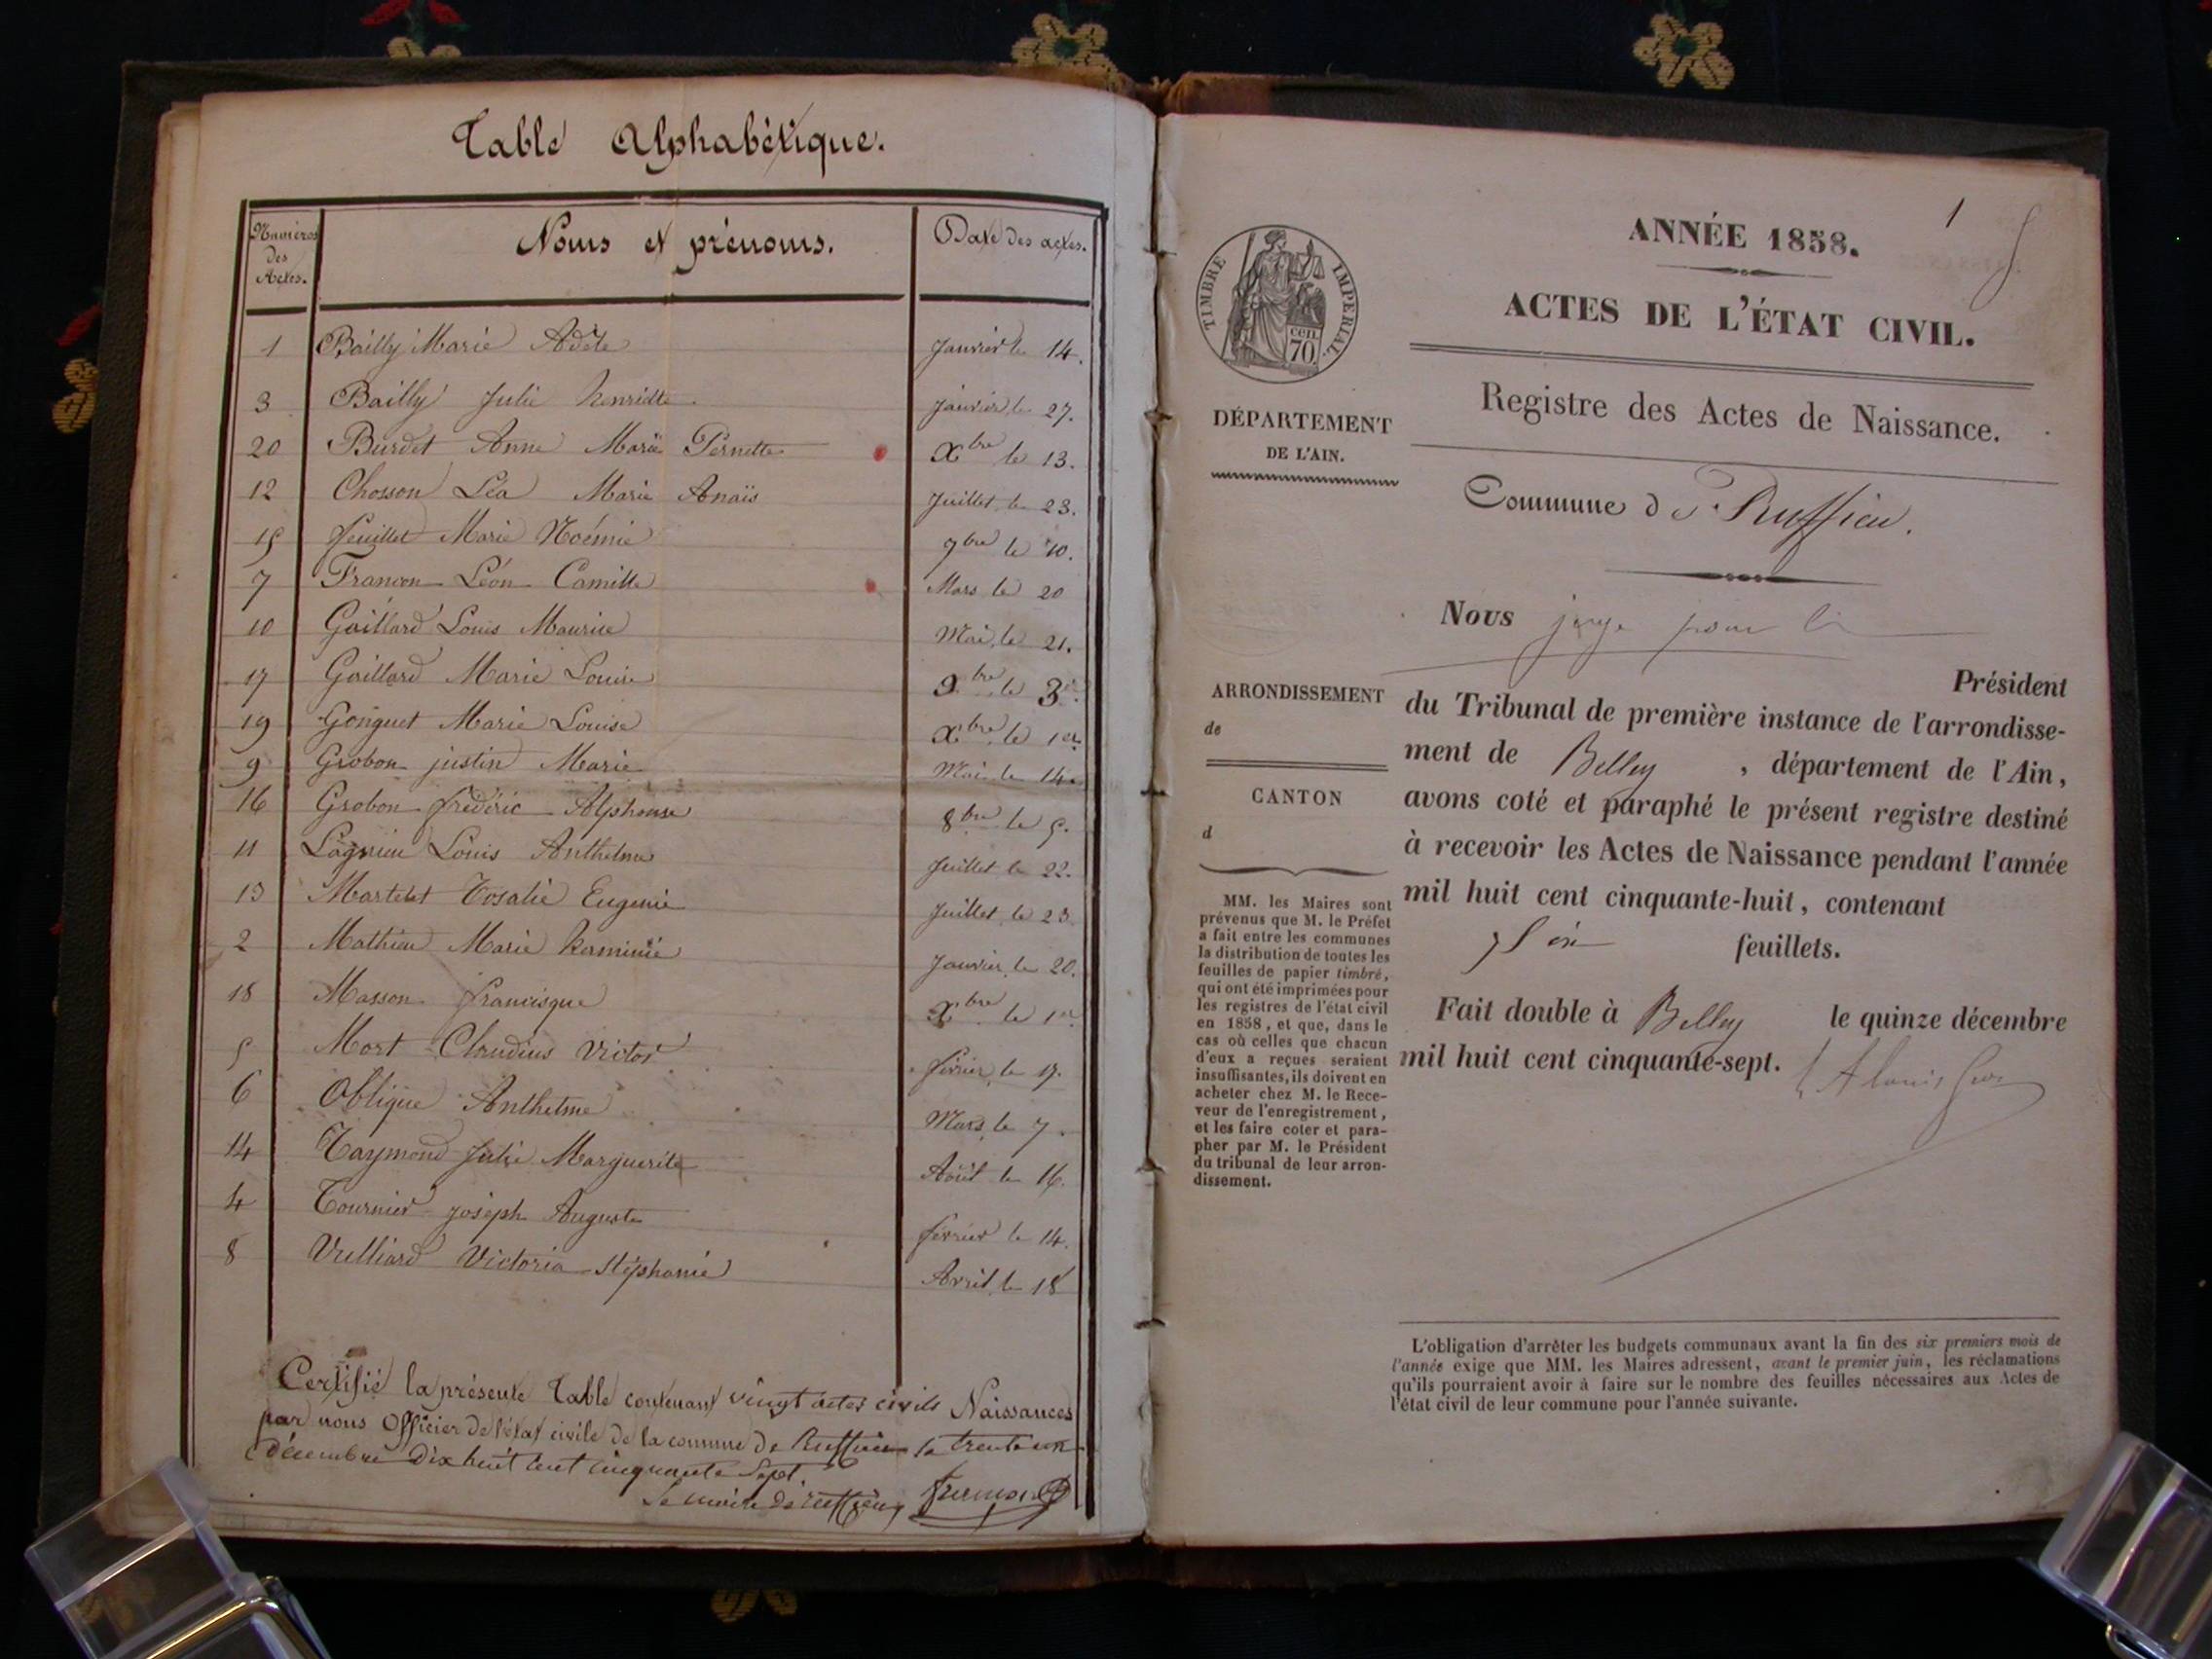 Table Alphabétique.
Numéros des Actes.
Noms et prénoms.
Date des actes.
1 Bailly Marie Adèle Janvier le 14.
3 Bailly Julie henriette Janvier le 27.
20 Burdet Anne Marie Pernette Xbre le 13.
12 Chosson Léa Marie Anaïs Juillet le 23.
15 feuillet Marie Noémie 9bre le 10.
7 Francon Léon Camille Mars le 20
10 Gaillard Louis Maurice Mai le 21.
17 Gaillard Marie Louise 9bre le 3
19 Gonguet Marie Louise Xbre le 1er
9 Grobon justin Marie Mai le 14.
16 Grobon frédéric Alphonse 8bre le 5.
11 Lagnieu Louis Anthelme Juillet le 22.
13 Martelet Rosalie Eugenie Juillet le 23
2 Mathieu Marie herminie Janvier le 20.
18 Masson francisque Xbre le 1er
5 Mort Claudius Victor février le 17.
6 Oblique Anthelme Mars le 7.
14 Raymond Julie Marguerite Août le 16.
4 Tournier joseph Auguste février le 14.
8 Vulliard Victoria Stéphanie Avril le 18
Certifié la présente Table contenant vingt actes civils Naissances
par nous Officier de l'état civile de la commune de Ruffieu le trente un
décembre Dix huit cent cinquante Sept.
Le maire de ruffieu
1
ANNÉE 1858.
ACTES DE L'ÉTAT CIVIL.
Registre des Actes de Naissance.
Commune de Ruffieu.
TIMBRE IMPÉRIAL.
cen. 70.
DÉPARTEMENT
DE L'AIN.
ARRONDISSEMENT
de
CANTON
d
MM. les Maires sont
prévenus que M. le Préfet
a fait entre les communes
la distribution de toutes les
feuilles de papier timbré,
qui ont été imprimées pour
les registres de l'état civil
en 1858, et que, dans le
cas où celles que chacun
d'eux a reçues seraient
insuffisantes, ils doivent en
acheter chez M. le Rece-
veur de l'enregistrement,
et les faire coter et para-
pher par M. le Président
du tribunal de leur arron-
dissement.
Nous juge pour le
Président
du Tribunal de première instance de l'arrondisse-
ment de Belley, département de l'Ain,
avons coté et paraphé le présent registre destiné
à recevoir les Actes de Naissance pendant l'année
mil huit cent cinquante-huit, contenant
feuillets.
Fait double à Belley le quinze décembre
mil huit cent cinquante-sept.
L'obligation d'arrêter les budgets communaux avant la fin des six premiers mois de
l'année exige que MM. les Maires adressent, avant le premier juin, les réclamations
qu'ils pourraient avoir à faire sur le nombre des feuilles nécessaires aux Actes de
l'état civil de leur commune pour l'année suivante.